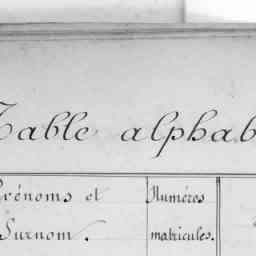 Table alphab
Prénoms et
Surnom.
Numéros
matricules.